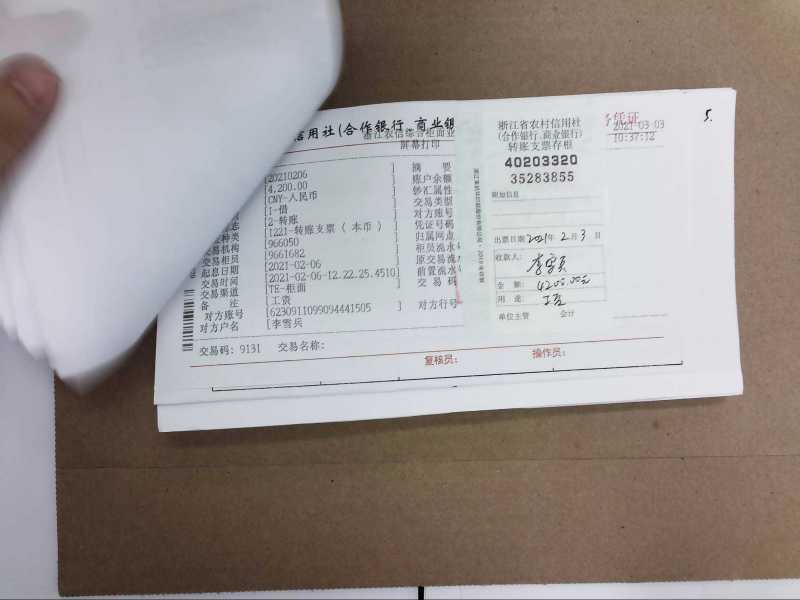 信用社(合作银行 商业银
浙江农信综合柜面业
屏幕打印
凭证
2021-03-03
10:37:12
5.
[20210206 ] 摘 要
[4,200.00 ] 账户余额
[CNY-人民币 ] 钞汇属性
[1-借 ] 交易类型
[2-转账 ] 对方账号
志 [1221-转账支票(本币) ] 凭证号码
种类 [966050 ] 归属网点
交易机构 [9661682 ] 柜员流水
交易柜员 [2021-02-06 ] 原交易流
起息日期 [2021-02-06-12.22.25.4510 ] 前置流水
交易时间 [TE-柜面 ] 交 易 码
交易渠道 [工资
备 注 [6230911099094441505 ] 对方行号
对方账号 [李雪兵
对方户名
交易码: 9131 交易名称:
复核员: 操作员:
浙江省农村信用社
(合作银行、商业银行)
转账支票存根
40203320
35283855
附加信息
出票日期 2021年 2月 3日
收款人:
李雪兵
金 额: 4200.00元
用 途: 工资
单位主管 会计